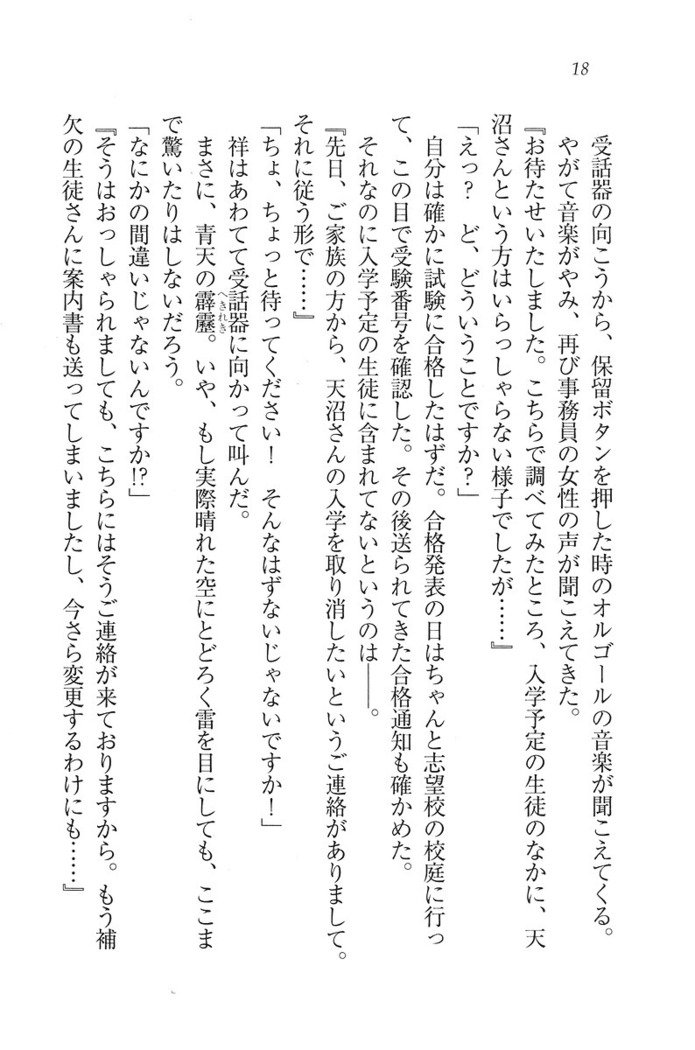 18
受話器の向こうから、保留ボタンを押した時のオルゴールの音楽が聞こえてくる。
やがて音楽がやみ、再び事務員の女性の声が聞こえてきた。
『お待たせいたしました。こちらで調べてみたところ、入学予定の生徒のなかに、天
沼さんという方はいらっしゃらない様子でしたが……』
「えっ？　ど、どういうことですか？」
自分は確かに試験に合格したはずだ。合格発表の日はちゃんと志望校の校庭に行っ
て、この目で受験番号を確認した。その後送られてきた合格通知も確かめた。
それなのに入学予定の生徒に含まれてないというのは――。
『先日、ご家族の方から、天沼さんの入学を取り消したいというご連絡がありまして。
それに従う形で……』
「ちょ、ちょっと待ってください！　そんなはずないじゃないですか！」
祥はあわてて受話器に向かって叫んだ。
まさに、青天の霹靂。いや、もし実際晴れた空にとどろく雷を目にしても、ここま
へきれき
で驚いたりはしないだろう。
「なにかの間違いじゃないんですか!?」
『そうはおっしゃられましても、こちらにはそうご連絡が来ておりますから。もう補
欠の生徒さんに案内書も送ってしまいましたし、今さら変更するわけにも……』